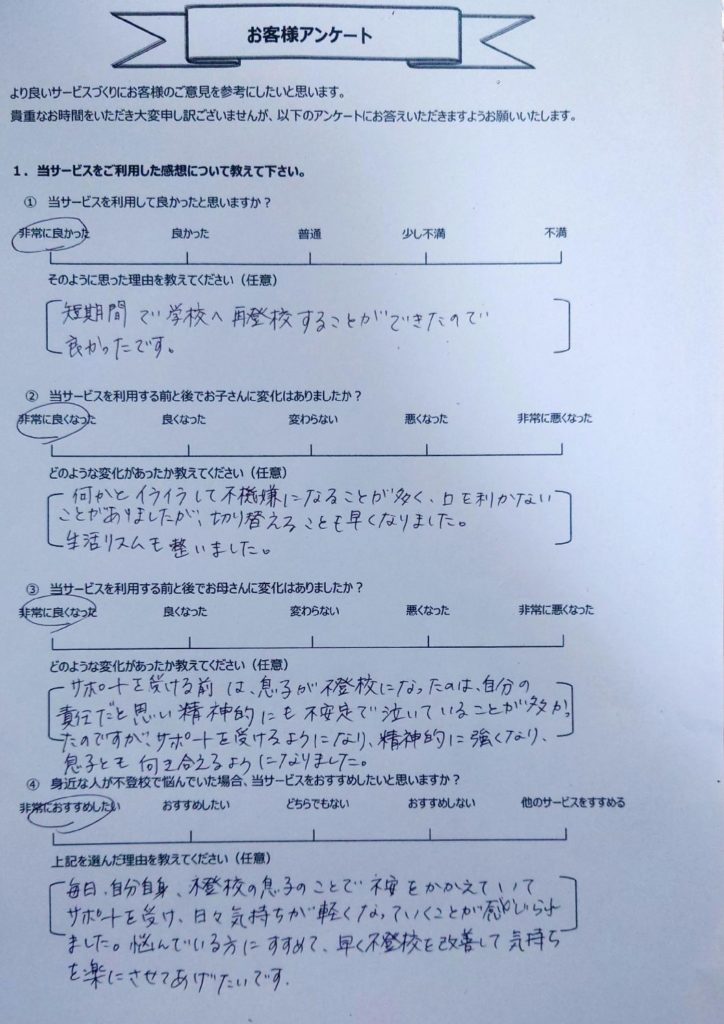 お客様アンケート
より良いサービスづくりにお客様のご意見を参考にしたいと思います。
貴重なお時間をいただき大変申し訳ございませんが、以下のアンケートにお答えいただきますようお願いいたします。
1．当サービスをご利用した感想について教えて下さい。
① 当サービスを利用して良かったと思いますか？
非常に良かった 良かった 普通 少し不満 不満
そのように思った理由を教えてください（任意）
短期間で学校へ再登校することができたので
良かったです。
② 当サービスを利用する前と後でお子さんに変化はありましたか？
非常に良くなった 良くなった 変わらない 悪くなった 非常に悪くなった
どのような変化があったか教えてください（任意）
何かとイライラして不機嫌になることが多く、口を利かない
ことがありましたが、切り替えることも早くなりました。
生活リズムも整いました。
③ 当サービスを利用する前と後でお母さんに変化はありましたか？
非常に良くなった 良くなった 変わらない 悪くなった 非常に悪くなった
どのような変化があったか教えてください（任意）
サポートを受ける前は、息子が不登校になったのは、自分の
責任だと思い精神的にも不安定で泣いていることが多かっ
たのですが、サポートを受けるようになり、精神的に強くなり、
息子とも向き合えるようになりました。
④ 身近な人が不登校で悩んでいた場合、当サービスをおすすめしたいと思いますか？
非常におすすめしたい おすすめしたい どちらでもない おすすめしない 他のサービスをすすめる
上記を選んだ理由を教えてください（任意）
毎日、自分自身、不登校の息子のことで不安をかかえていて
サポートを受け、日々気持ちが軽くなっていくことが感じられ
ました。悩んでいる方にすすめて、早く不登校を改善して気持ち
を楽にさせてあげたいです.